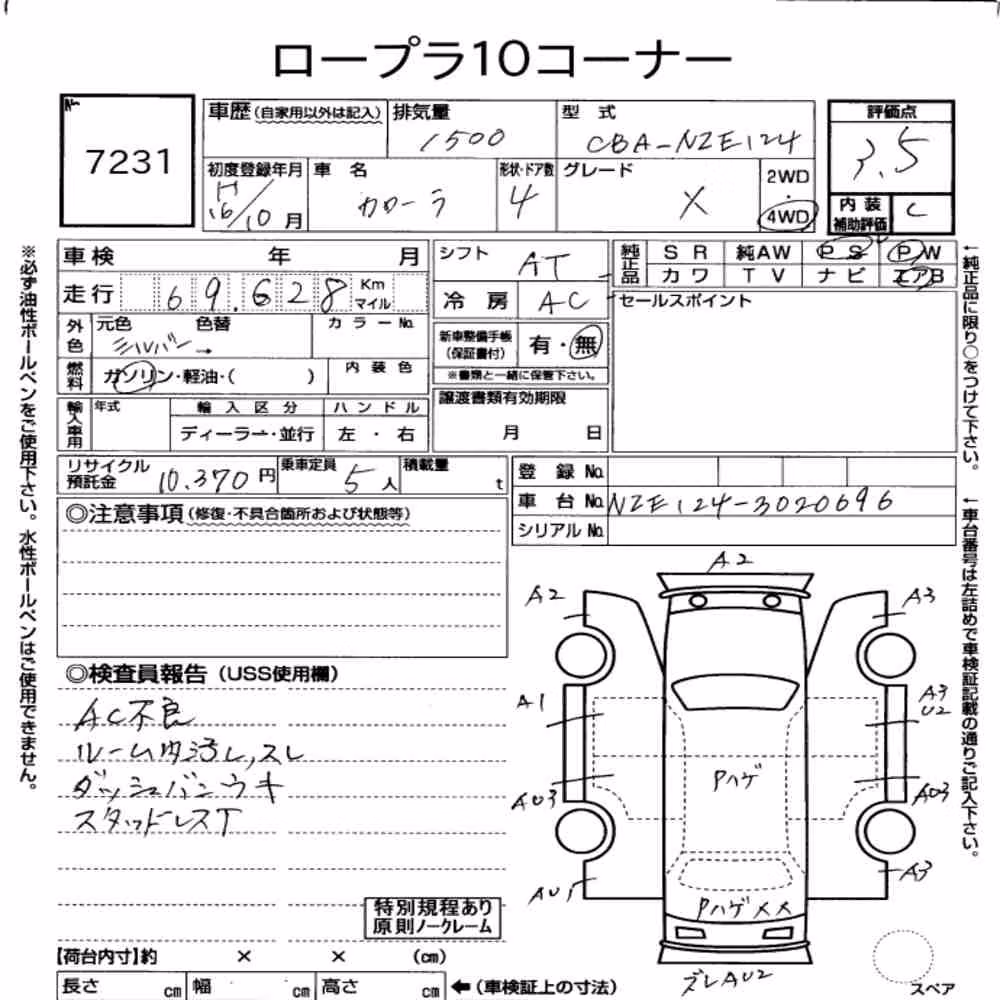 ロープラ10コーナー
No.
7231
車歴(自家用以外は記入)
排気量
1500
型 式
CBA-NZE124
評価点
3.5
初度登録年月
H
16/10月
車 名
カローラ
形状・ドア数
4
グレード
X
2WD
・
4WD
内装
補助評価
C
車検 年 月
シフト
AT
純正品
SR 純AW PS PW
カワ TV ナビ エアB
走行
69.628
Km
マイル
冷 房
AC
セールスポイント
外色
元色
シルバー
色替
→
カラーNo.
新車整備手帳
(保証書付)
有・無
※書類と一緒に保管下さい。
燃料
ガソリン・軽油・( )
内装色
輸入車用
年式
輸入区分
ハンドル
ディーラー・並行
左・右
譲渡書類有効期限
月 日
リサイクル
預託金
10.370円
乗車定員
5人
積載量
t
登 録 No.
車 台 No.
NZE124-3020696
シリアル No.
◎注意事項(修復・不具合箇所および状態等)
◎検査員報告(USS使用欄)
AC不良
ルーム内汚レ,スレ
ダッシュバンウキ
スタッドレスT
特別規程あり
原則ノークレーム
【荷台内寸】約 × × (cm)
長さ cm 幅 cm 高さ cm
←(車検証上の寸法)
A2
A2
A3
A1
A3
U2
Pハゲ
AU3
AU3
AU5
A3
PハゲXX
ズレAU2
スペア
※必ず油性ボールペンをご使用下さい。水性ボールペンはご使用できません。
←純正品に限り○をつけて下さい。
←車台番号は左詰めで車検証記載の通りご記入下さい。